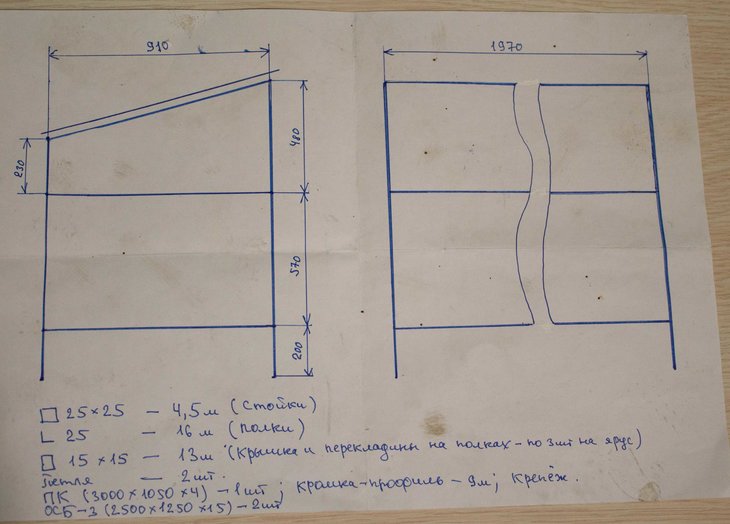 910
1970
230
480
570
200
□ 25×25 — 4,5м (стойки)
∟ 25 — 16м (полки)
□ 15×15 — 13м (крышка и перекладины на полках – по 3шт на ярус)
Петля — 2шт.
ПК (3000×1050×4) – 1шт; кромка-профиль – 9м; крепёж.
ОСБ-3 (2500×1250×15) – 2шт